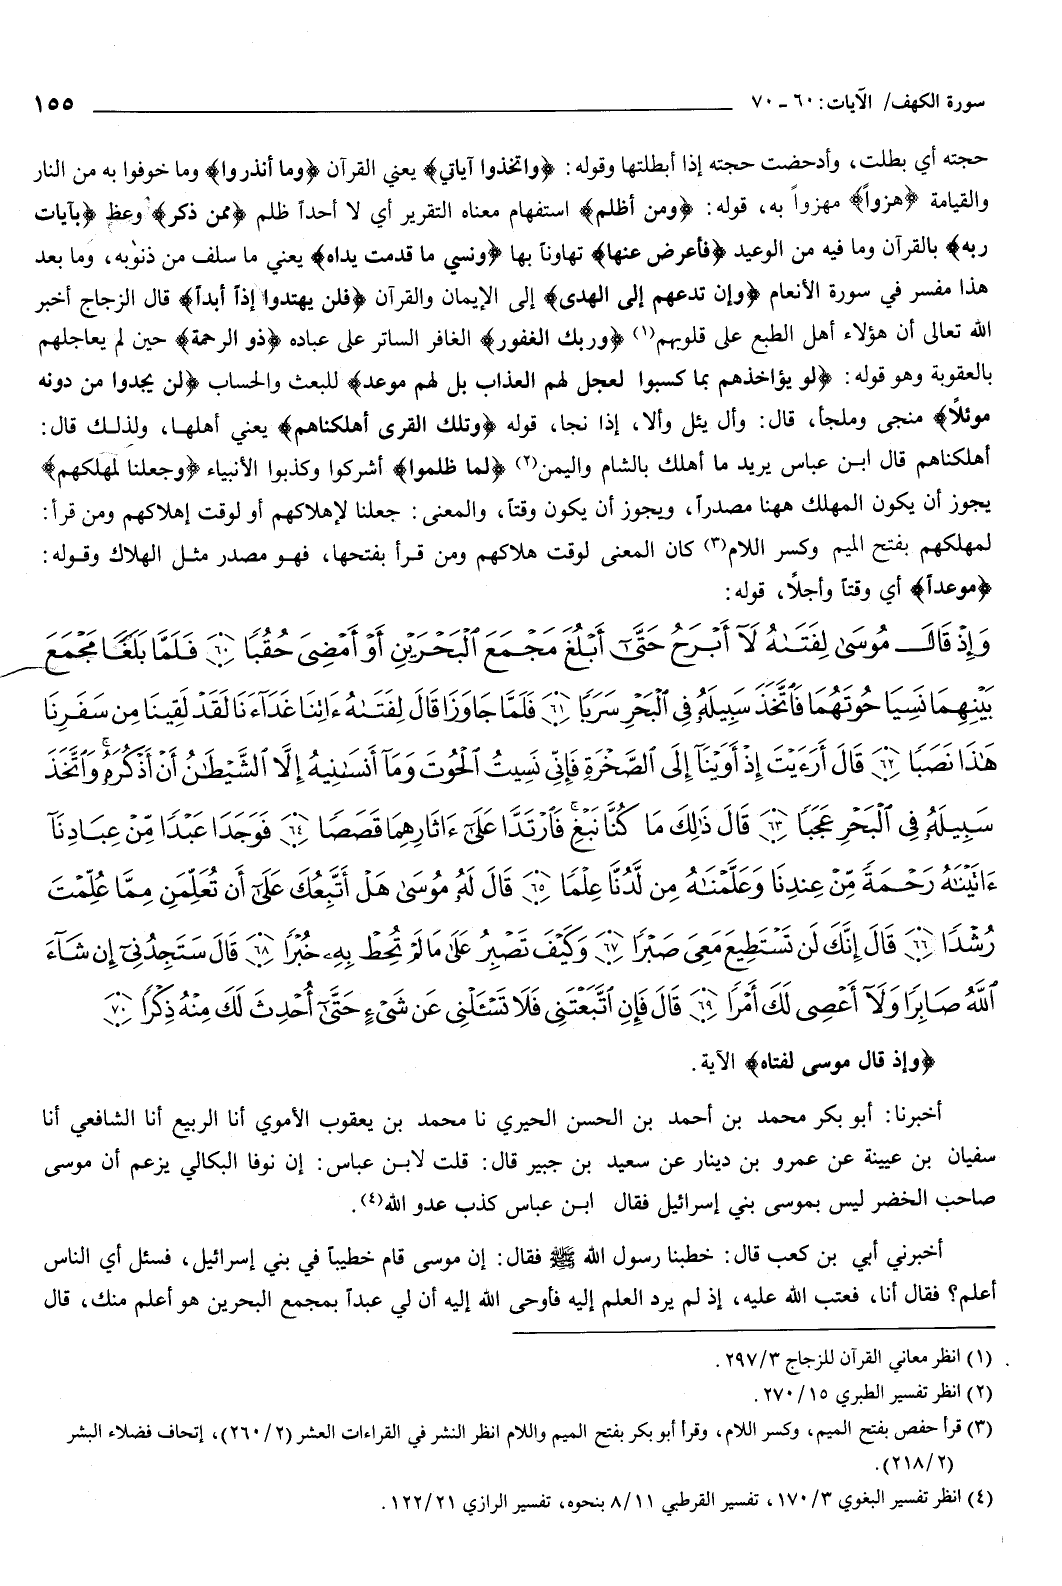 سورة الكهف/ الآيات: ٦٠ - ٧٠ ١٥٥
حجته أي بطلت، وأدحضت حجته إذا أبطلتها وقوله: ﴿واتخذوا آياتي﴾ يعني القرآن ﴿وما أنذروا﴾ وما خوفوا به من النار
والقيامة ﴿هزواً﴾ مهزواً به، قوله: ﴿ومن أظلم﴾ استفهام معناه التقرير أي لا أحداً ظلم ﴿ممن ذكر﴾ وعظ ﴿بآيات
ربه﴾ بالقرآن وما فيه من الوعيد ﴿فأعرض عنها﴾ تهاوناً بها ﴿ونسي ما قدمت يداه﴾ يعني ما سلف من ذنوبه، وما بعد
هذا مفسر في سورة الأنعام ﴿وإن تدعهم إلى الهدى﴾ إلى الإيمان والقرآن ﴿فلن يهتدوا إذاً أبداً﴾ قال الزجاج أخبر
الله تعالى أن هؤلاء أهل الطبع على قلوبهم(١) ﴿وربك الغفور﴾ الغافر الساتر على عباده ﴿ذو الرحمة﴾ حين لم يعاجلهم
بالعقوبة وهو قوله: ﴿لو يؤاخذهم بما كسبوا لعجل لهم العذاب بل لهم موعد﴾ للبعث والحساب ﴿لن يجدوا من دونه
موئلاً﴾ منجى وملجأ، قال: وأل يئل وألا، إذا نجا، قوله ﴿وتلك القرى أهلكناهم﴾ يعني أهلها، ولذلك قال:
أهلكناهم قال ابن عباس يريد ما أهلك بالشام واليمن(٢) ﴿لما ظلموا﴾ أشركوا وكذبوا الأنبياء ﴿وجعلنا لمهلكهم﴾
يجوز أن يكون المهلك ههنا مصدراً، ويجوز أن يكون وقتاً، والمعنى: جعلنا لإهلاكهم أو لوقت إهلاكهم ومن قرأ:
لمهلكهم بفتح الميم وكسر اللام(٣) كان المعنى لوقت هلاكهم ومن قرأ بفتحها، فهو مصدر مثل الهلاك وقوله:
﴿موعداً﴾ أي وقتاً وأجلاً، قوله:
وَإِذْ قَالَ مُوسَىٰ لِفَتَىٰهُ لَآ أَبْرَحُ حَتَّىٰٓ أَبْلُغَ مَجْمَعَ ٱلْبَحْرَيْنِ أَوْ أَمْضِىَ حُقُبًا ﴿٦٠﴾ فَلَمَّا بَلَغَا مَجْمَعَ
بَيْنِهِمَا نَسِيَا حُوتَهُمَا فَٱتَّخَذَ سَبِيلَهُۥ فِى ٱلْبَحْرِ سَرَبًا ﴿٦١﴾ فَلَمَّا جَاوَزَا قَالَ لِفَتَىٰهُ ءَاتِنَا غَدَآءَنَا لَقَدْ لَقِينَا مِن سَفَرِنَا
هَٰذَا نَصَبًا ﴿٦٢﴾ قَالَ أَرَءَيْتَ إِذْ أَوَيْنَآ إِلَى ٱلصَّخْرَةِ فَإِنِّى نَسِيتُ ٱلْحُوتَ وَمَآ أَنسَىٰنِيهُ إِلَّا ٱلشَّيْطَٰنُ أَنْ أَذْكُرَهُۥ ۚ وَٱتَّخَذَ
سَبِيلَهُۥ فِى ٱلْبَحْرِ عَجَبًا ﴿٦٣﴾ قَالَ ذَٰلِكَ مَا كُنَّا نَبْغِ ۚ فَٱرْتَدَّا عَلَىٰٓ ءَاثَارِهِمَا قَصَصًا ﴿٦٤﴾ فَوَجَدَا عَبْدًا مِّنْ عِبَادِنَآ
ءَاتَيْنَٰهُ رَحْمَةً مِّنْ عِندِنَا وَعَلَّمْنَٰهُ مِن لَّدُنَّا عِلْمًا ﴿٦٥﴾ قَالَ لَهُۥ مُوسَىٰ هَلْ أَتَّبِعُكَ عَلَىٰٓ أَن تُعَلِّمَنِ مِمَّا عُلِّمْتَ
رُشْدًا ﴿٦٦﴾ قَالَ إِنَّكَ لَن تَسْتَطِيعَ مَعِىَ صَبْرًا ﴿٦٧﴾ وَكَيْفَ تَصْبِرُ عَلَىٰ مَا لَمْ تُحِطْ بِهِۦ خُبْرًا ﴿٦٨﴾ قَالَ سَتَجِدُنِىٓ إِن شَآءَ
ٱللَّهُ صَابِرًا وَلَآ أَعْصِى لَكَ أَمْرًا ﴿٦٩﴾ قَالَ فَإِنِ ٱتَّبَعْتَنِى فَلَا تَسْـَٔلْنِى عَن شَىْءٍ حَتَّىٰٓ أُحْدِثَ لَكَ مِنْهُ ذِكْرًا ﴿٧٠﴾
﴿وإذ قال موسى لفتاه﴾ الآية.
أخبرنا: أبو بكر محمد بن أحمد بن الحسن الحيري نا محمد بن يعقوب الأموي أنا الربيع أنا الشافعي أنا
سفيان بن عيينة عن عمرو بن دينار عن سعيد بن جبير قال: قلت لابن عباس: إن نوفا البكالي يزعم أن موسى
صاحب الخضر ليس بموسى بني إسرائيل فقال ابن عباس كذب عدو الله(٤).
أخبرني أبي بن كعب قال: خطبنا رسول الله ﷺ فقال: إن موسى قام خطيباً في بني إسرائيل، فسئل أي الناس
أعلم؟ فقال أنا، فعتب الله عليه، إذ لم يرد العلم إليه فأوحى الله إليه أن لي عبداً بمجمع البحرين هو أعلم منك، قال
(١) انظر معاني القرآن للزجاج ٢٩٧/٣.
(٢) انظر تفسير الطبري ٢٧٠/١٥.
(٣) قرأ حفص بفتح الميم، وكسر اللام، وقرأ أبو بكر بفتح الميم واللام انظر النشر في القراءات العشر (٢٦٠/٢)، إتحاف فضلاء البشر
(٢١٨/٢).
(٤) انظر تفسير البغوي ١٧٠/٣، تفسير القرطبي ٨/١١ بنحوه، تفسير الرازي ١٢٢/٢١.